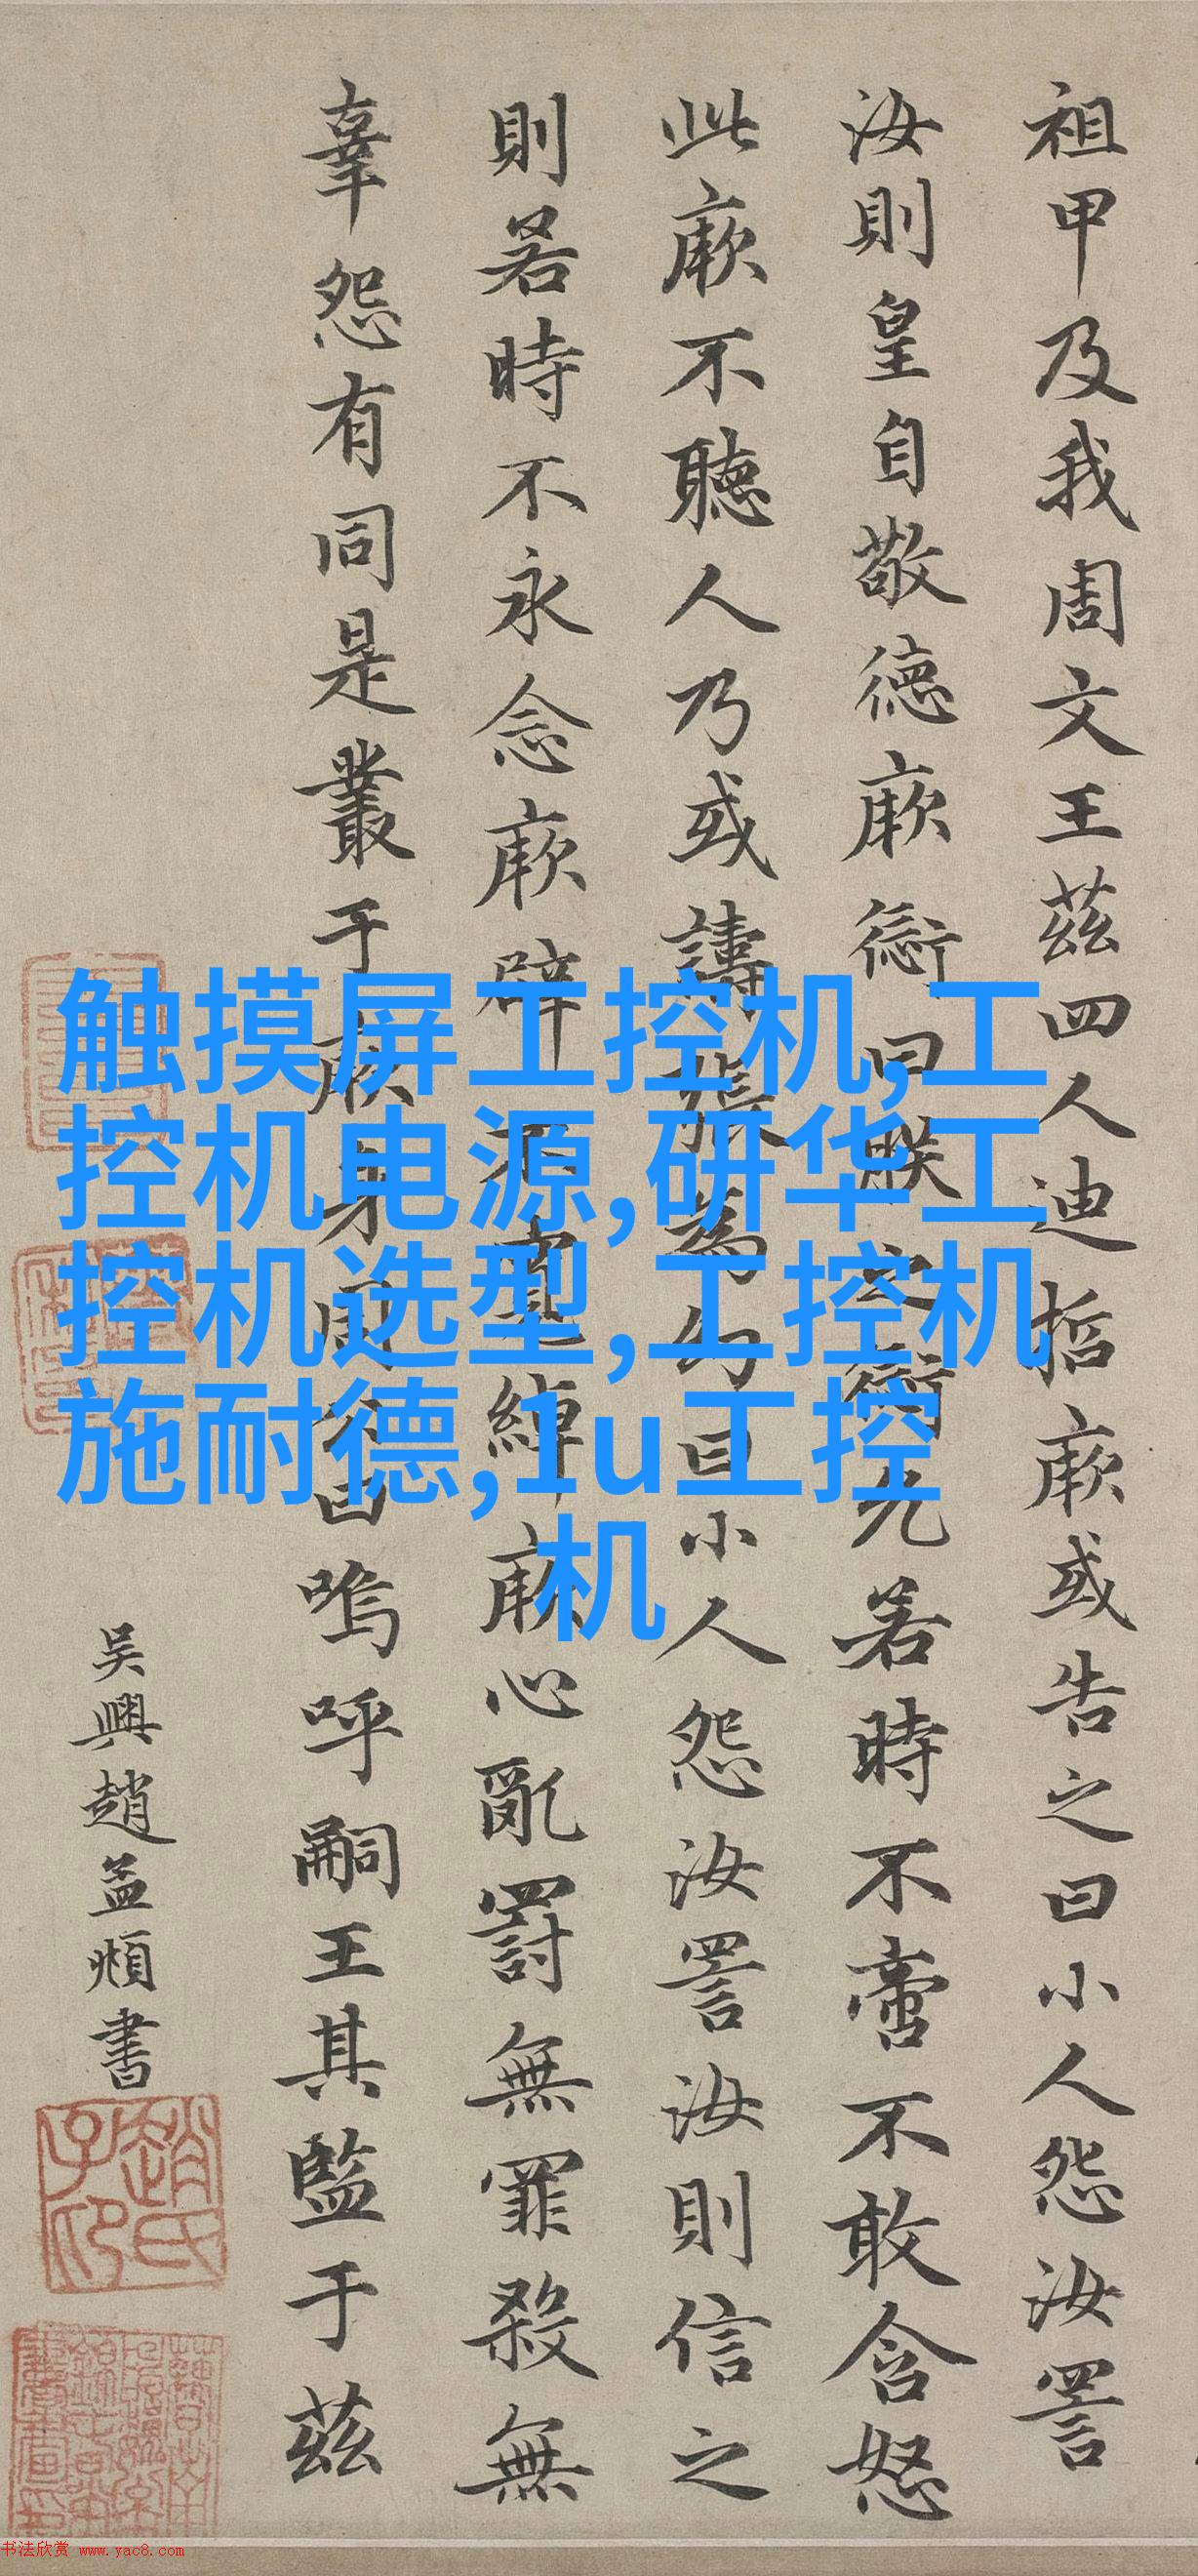 祖甲及我周文王茲四人迪哲厥或告之曰小人怨汝詈
汝則皇自敬德厥愆曰朕之愆允若時不啻不敢含怒
此厥不聽人乃或譸張為幻曰小人怨汝詈汝則信之
則若時不永念厥辟不寬綽厥心亂罰無罪殺無
辜怨有同是叢于厥身周公曰嗚呼嗣王其監于茲
吴興趙孟頫書
趙氏子昂
触摸屏工控机,工
控机电源,研华工
控机选型,工控机
施耐德,1u工控
机
书法欣赏 www.yac8.com